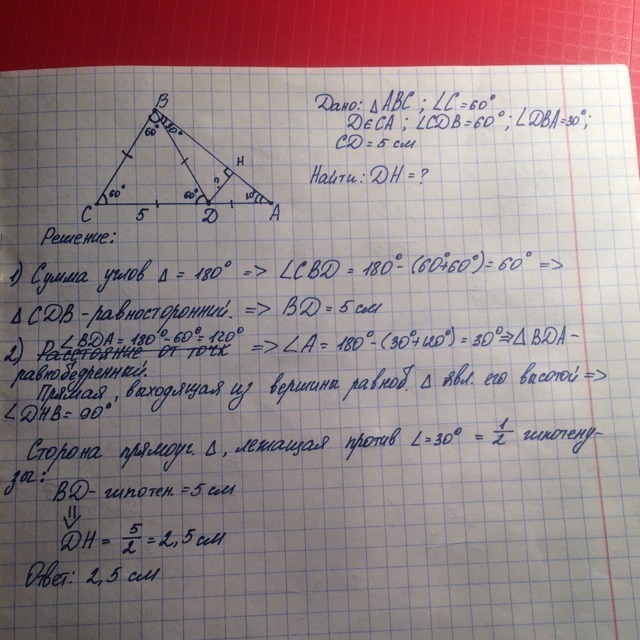 B
60° 30°
H
?
60° 60° 30°
C 5 D A
Дано: △ABC ; ∠C = 60°
D∈CA ; ∠CDB = 60° ; ∠DBA = 30° ;
CD = 5 см
Найти: DH = ?
Решение:
1) Сумма углов △ = 180° => ∠CBD = 180° - (60°+60°) = 60° =>
△CDB - равносторонний. => BD = 5 см
∠BDA = 180° - 60° = 120°
2) Расстояние от точк => ∠A = 180° - (30°+120°) = 30° => △BDA -
равнобедренный.
Прямая, выходящая из вершины равноб. △ явл. его высотой =>
∠DHB = 90°
Сторона прямоуг. △, лежащая против ∠ = 30° = 1/2 гипотену-
зы:
BD - гипотен. = 5 см
⇓
DH = 5/2 = 2,5 см
Ответ: 2,5 см